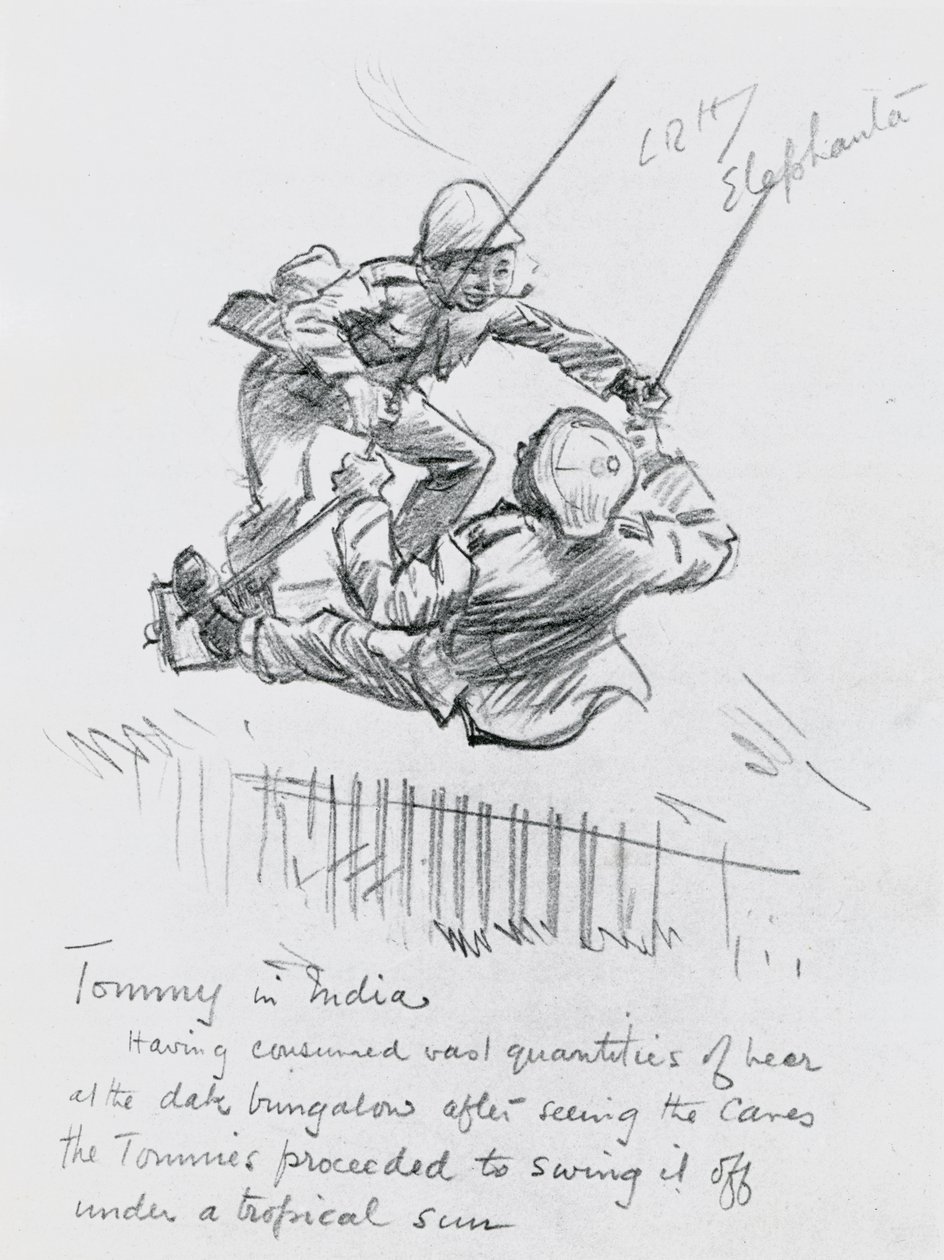 LRH/
Elephanta
Tommy in India
Having consumed vast quantities of beer
at the dak bungalow after seeing the Caves
the Tommies proceeded to swing it off
under a tropical sun